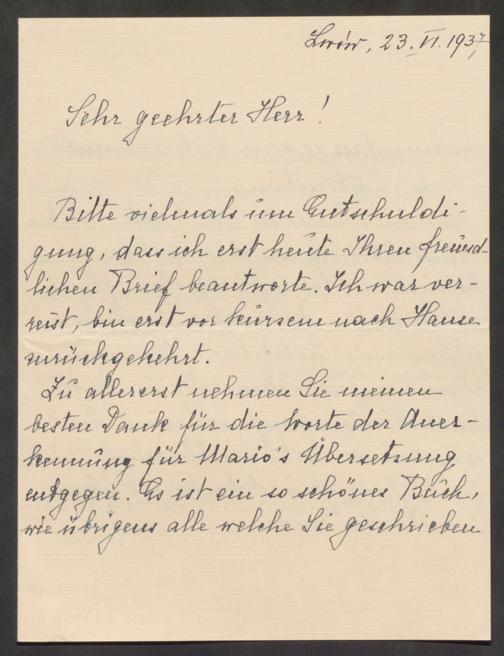 Lwów, 23. VI. 1937,
Sehr geehrter Herr!
Bitte vielmals um Entschuldi-
gung, dass ich erst heute Ihren freund-
lichen Brief beantworte. Ich war ver-
reist, bin erst vor kurzem nach Hause
zurückgekehrt.
Zu allererst nehmen Sie meinen
besten Dank für die Worte der Aner-
kennung für Mario's Übersetzung
entgegen. Es ist ein so schönes Buch,
wie übrigens alle welche Sie geschrieben